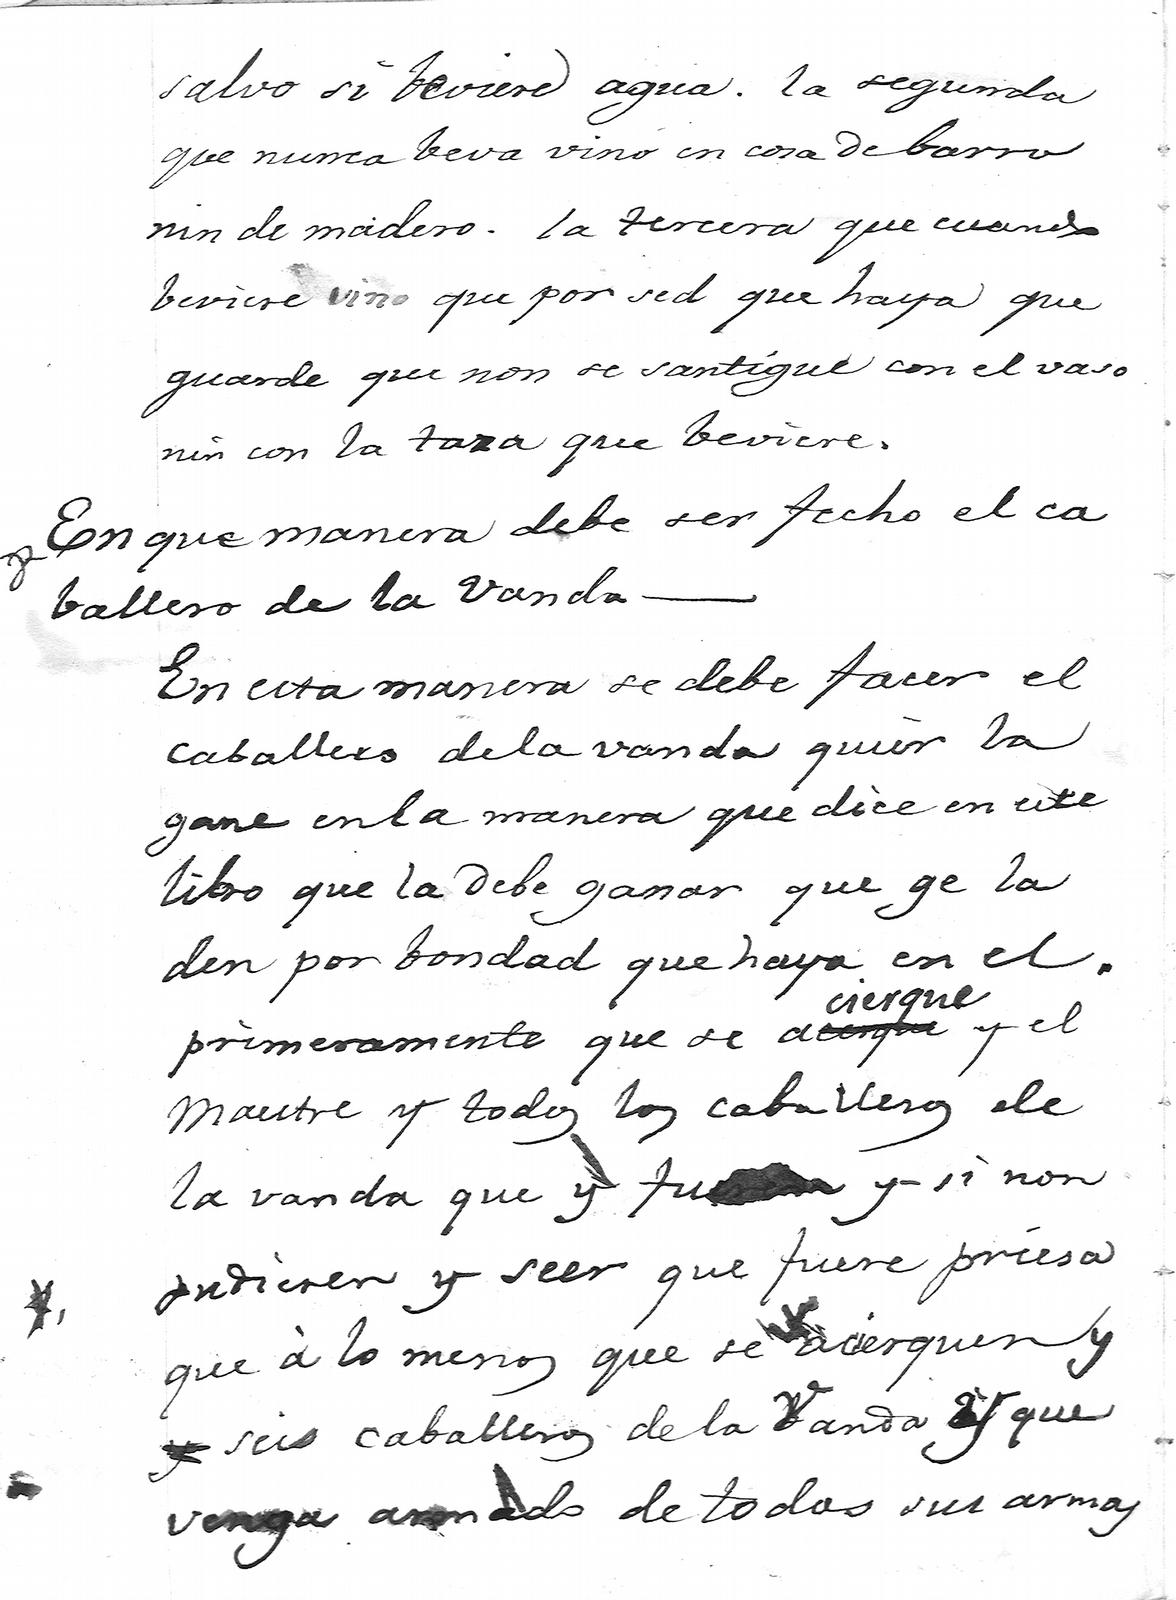 salvo si beviere agua. la segunda
que nunca beva vino en cosa de barro
nin de madero. la tercera que cuando
beviere vino que por sed que haya que
guarde que non se santigue con el vaso
nin con la taza que beviere.
En que manera debe ser fecho el ca
ballero de la Vanda —
En esta manera se debe facer el
caballero de la vanda quier la
gane en la manera que dice en este
libro que la debe ganar que ge la
den por bondad que haya en el.
cierque
primeramente que se acerque y el
Maestre y todos los caballeros de
la vanda que y fueren y si non
pudieren y seer que fuere priesa
que à lo menos que se acierquen y
y seis caballeros de la Vanda y que
venga armado de todas sus armas